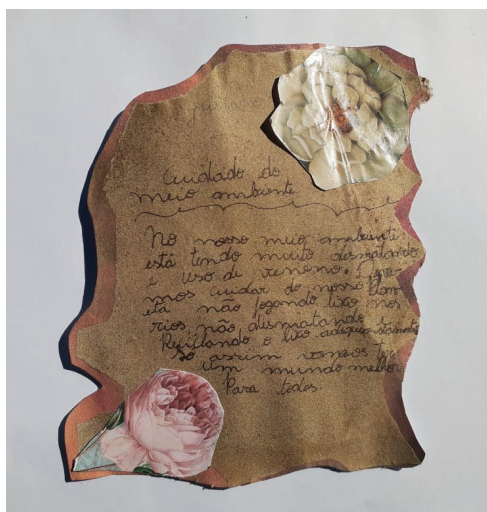 Cuidado do
meio ambiente
No nosso meio ambiente
está tendo muito desmatando
e uso de veneno.
mos cuidar do nosso
não jogando lixo nos
rios não desmatando
o lixo
Só assim vamos ter
um mundo melhor
Para todos.